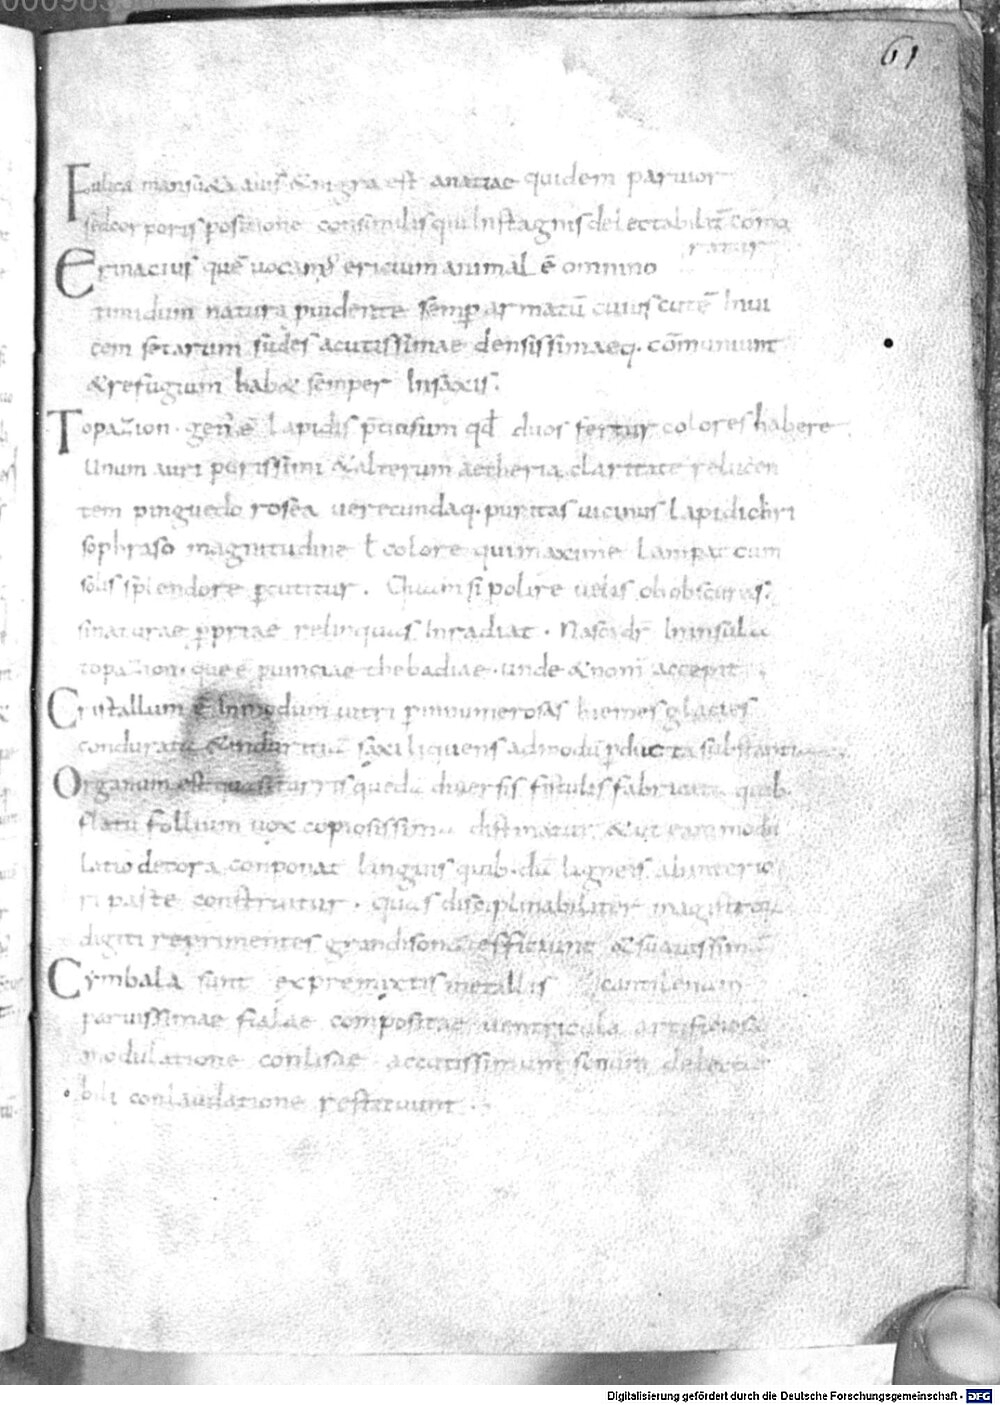 61
Fulica mansu&a auis &nigra est anatae quidem paruior
sedcorporis positione consimilis qui Instagnis delectabilit̄ com̄o
ratur
Erinacius quē uocam̄ ericium animal ē omnino
timidum natura p̄uidente semp̄ armatū cuius cutē Inui
cem setarum sudes acutissimae densissimaeq. com̄uniunt
&refugium hab& semper Insaxis.
Topazion. gen' ē Lapidis p̄tiosum qđ duos fertur colores habere
Unum auri purissimi &alterum aetheria claritate relucen
tem pinguedo rosea uerecundaq. puritas uicinus Lapidi chri
sophraso magnitudine ł colore qui maxime Lampat cum
solis splendore p̄cutitur. Quam si polire uelis obobscuras.
sinaturae p̄priae relinquas Inradiat. Nascidr̄ Ininsula
topazion. que ē p̄unciae thebadiae. unde &nom̄ accepit.
Cristallum ē Inmodum uitri p̄innumerosas hiemes glacies
condurata &Induritiā saxi liquens admodū p̄ducta substantia
Organum est quasi turris quedā diuersis fistulis fabricata quib.
flatu follium uox copiosissima distinatur &ut eam modu
latio decora conponat linguis quib. dā ligneis abinterio
ri parte construitur. quas disciplinabiliter magistrorū
digiti reprimentes grandisonā efficiunt &suauissimā
Cymbala sunt expremixtis metallis cantilenam
paruissimae fialae compositae uentricula artificiosa
modulatione conlisae accutissimum sonum delecta
bili conlaudatione restituunt.
Digitalisierung gefördert durch die Deutsche Forschungsgemeinschaft - DFG